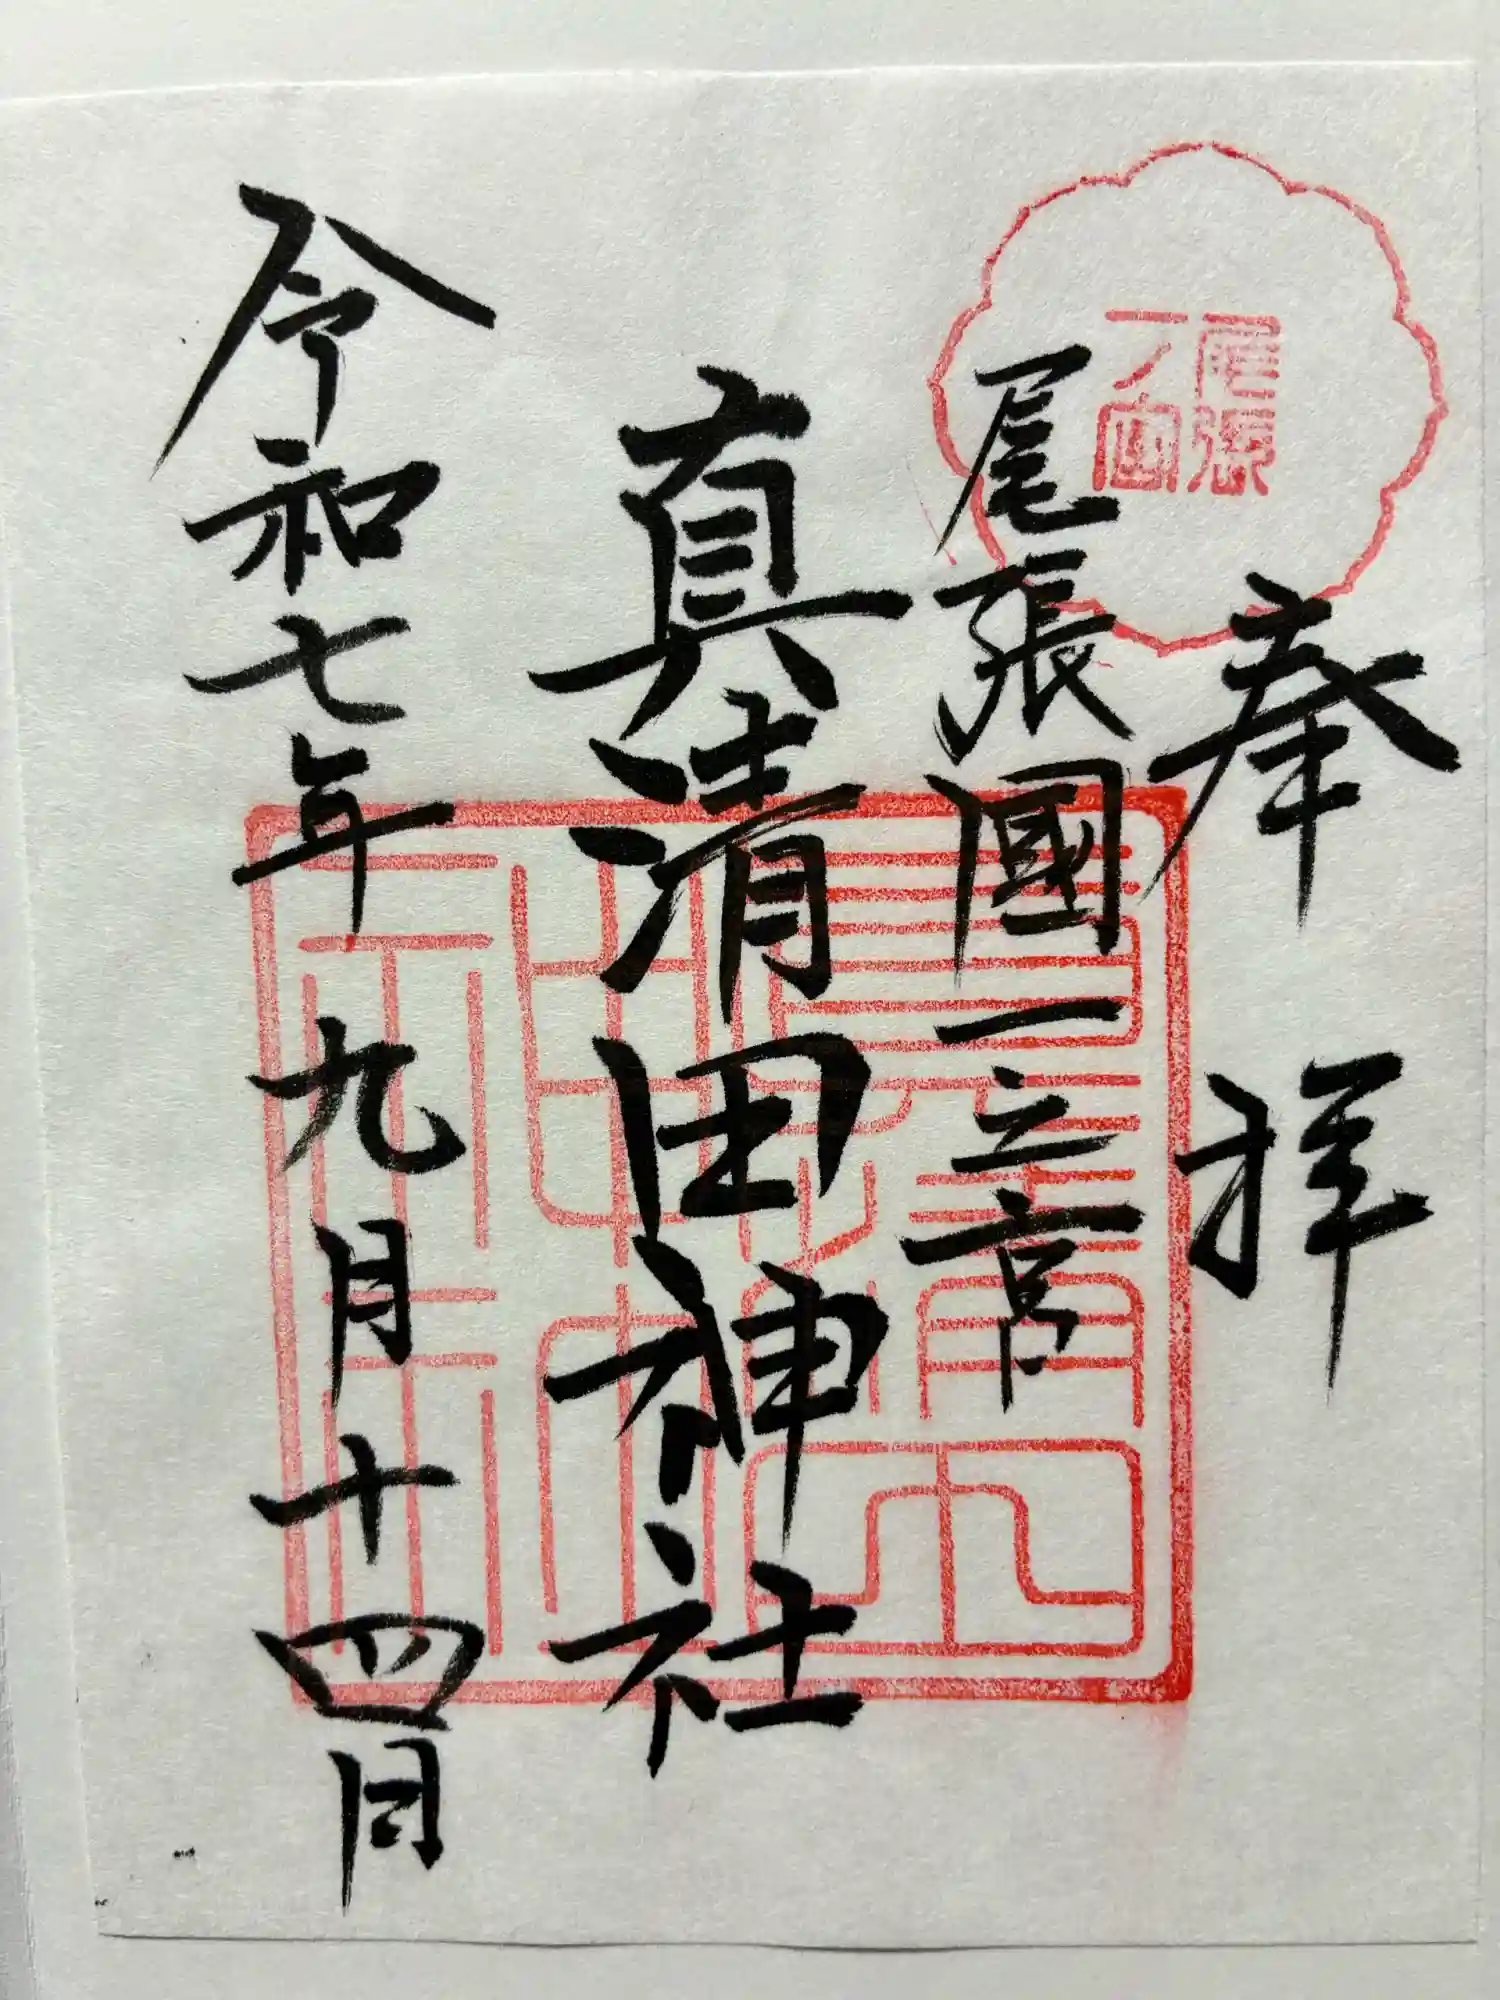 奉拝
尾張
一ノ宮
尾張國一之宮
真清田神社
真清田
神社
印
令和七年九月十四日